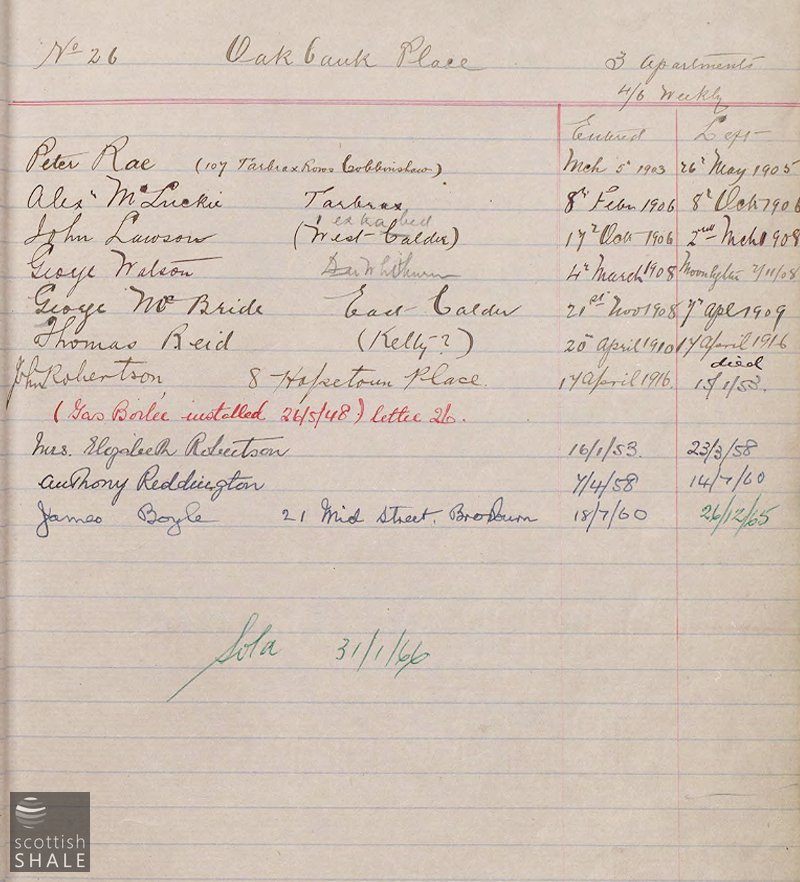 No 26 Oakbank Place 3 Apartments
4/6 Weekly
Entred Left
Peter Rae (107 Tarbrax Rows Cobbinshaw) Mch 5th 1903 26th May 1905
Alexr McLuckie Tarbrax 8th Febr 1906 8th Oct 1906
John Lawson (West Calder) 17th Oct 1906 2nd Mch 1908
George Watson 4th March 1908 2/11/08
George McBride East Calder 21st Nov 1908 7th Apl 1909
Thomas Reid (Kelly?) 20th April 1910 17 April 1916
John Robertson, 8 Hopetoun Place. 17 April 1916. died 15/1/53.
(Gas Boiler installed 26/5/48) letter 26.
Mrs. Elizabeth Robertson 16/1/53. 23/3/58
Anthony Reddington 7/4/58 14/7/60
James Boyle 21 Mid Street, Broxburn 18/7/60 26/12/65
Sold 31/1/66
scottish
SHALE